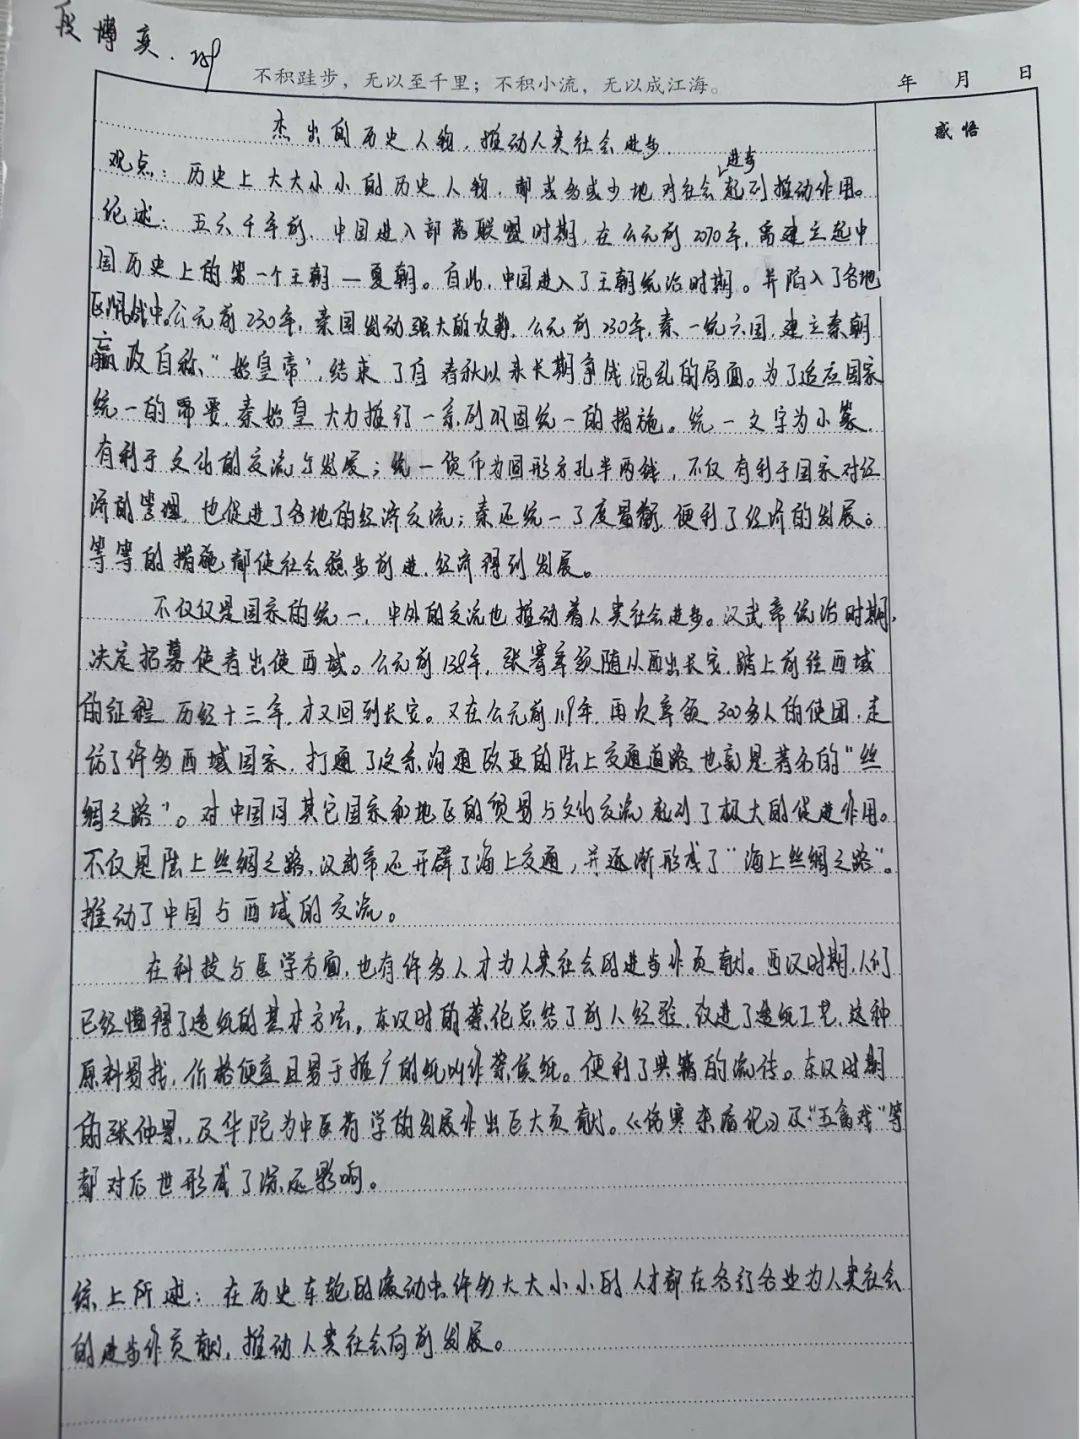 段博奕. 219
不积跬步，无以至千里；不积小流，无以成江海。 年 月 日
感悟
杰出的历史人物，推动人类社会进步.
进步
观点：历史上大大小小的历史人物，都或多或少地对社会起到推动作用。
论述：五六千年前，中国进入部落联盟时期，在公元前2070年，禹建立起中
国历史上的第一个王朝—夏朝。自此，中国进入了王朝统治时期。并陷入了各地
战中。公元前230年，秦国发动强大的攻势，公元前230年，秦一统六国，建立秦朝
嬴政自称“始皇帝”，结束了自春秋以来长期争战混乱的局面。为了适应国家
统一的需要，秦始皇大力推行一系列巩固统一的措施。统一文字为小篆，
有利于文化的交流与发展；统一货币为圆形方孔半两钱，不仅有利于国家对经
济的管理，也促进了各地的经济交流；秦还统一了度量衡，便利了经济的发展。
等等的措施，都使社会稳步前进，经济得到发展。
不仅仅是国家的统一，中外的交流也推动着人类社会进步。汉武帝统治时期，
决定招募使者出使西域。公元前138年，张骞率领随从西出长安，踏上前往西域
的征程，历经十三年，才又回到长安。又在公元前119年，再次率领300多人的使团，走
访了许多西域国家，打通了这条沟通欧亚的陆上交通道路，也就是著名的“丝
绸之路”。对中国同其它国家和地区的贸易与文化交流起到了极大的促进作用。
不仅是陆上丝绸之路，汉武帝还开辟了海上交通，并逐渐形成了“海上丝绸之路”。
推动了中国与西域的交流。
在科技与医学方面，也有许多人才为人类社会的进步作贡献。西汉时期，人们
已经懂得了造纸的基本方法，东汉时的蔡伦总结了前人经验，改进了造纸工艺，这种
原料易找，价格便宜且易于推广的纸叫作蔡侯纸。便利了典籍的流传。东汉时期
的张仲景，及华陀为中医药学的发展作出巨大贡献。《伤寒杂病论》及“五禽戏”等
都对后世形成了深远影响。
综上所述：在历史车轮的滚动中，许多大大小小的人才都在各行各业为人类社会
的进步作贡献，推动人类社会向前发展。